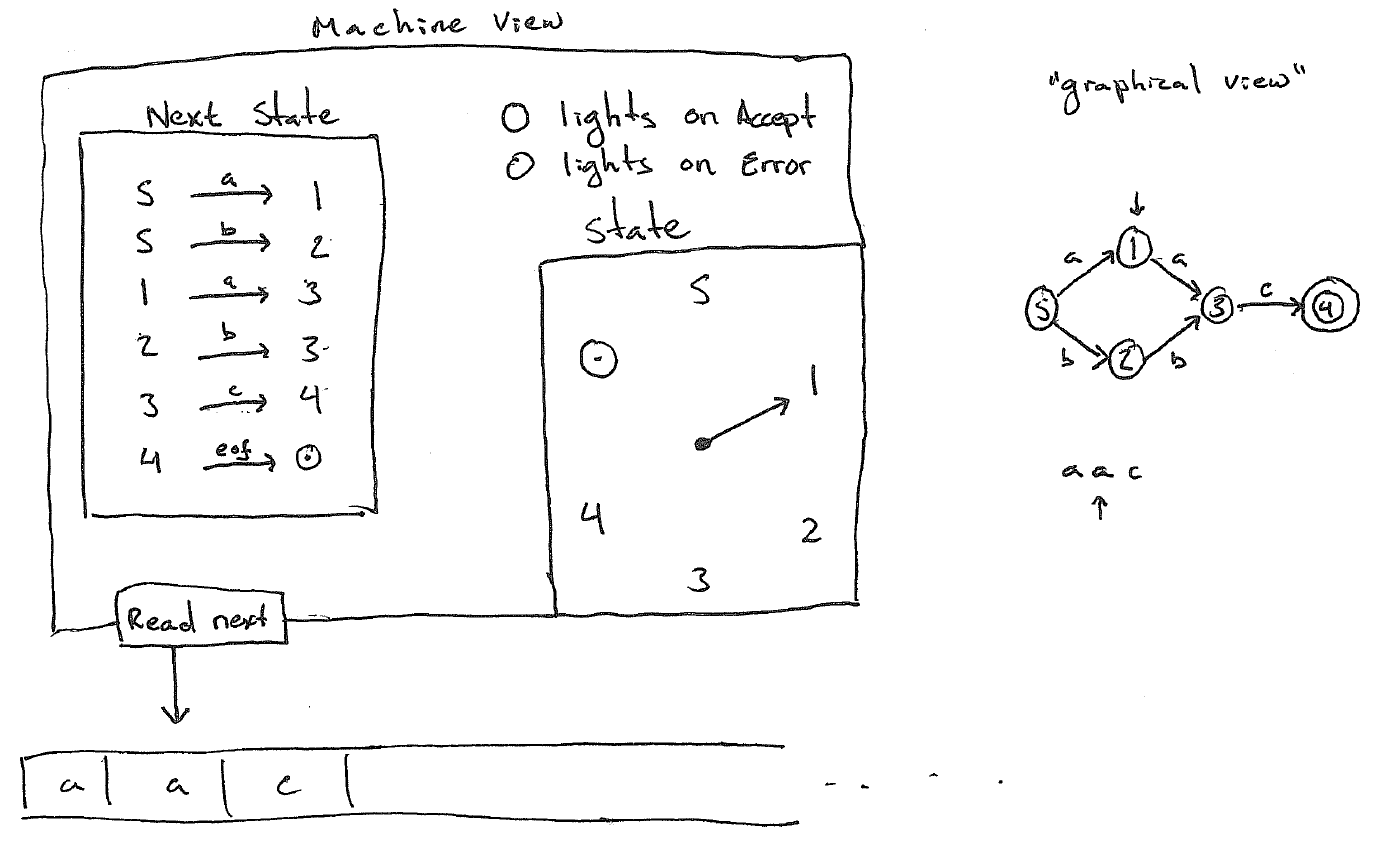 Machine View
Next State
S a → 1
S b → 2
1 a → 3
2 b → 3
3 c → 4
4 eof → ⊙
○ lights on Accept
○ lights on Error
State
S
1
2
3
4
Read next
a a c
"graphical view"
S a 1 a 3 c 4
b 2 b
a a c